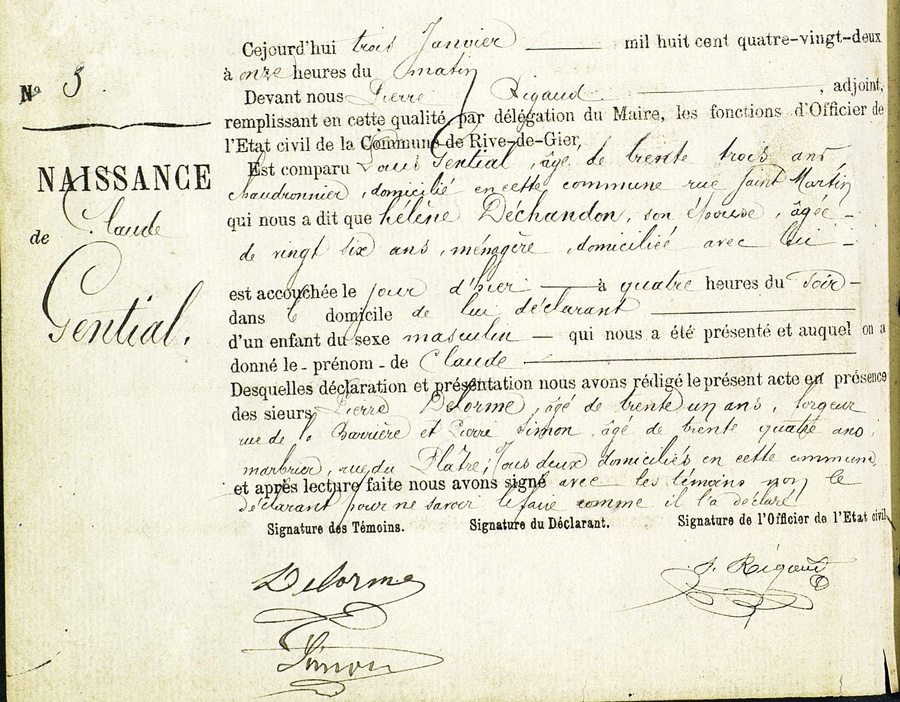 Cejourd'hui trois Janvier mil huit cent quatre-vingt-deux
à onze heures du matin
Nº 3
Devant nous Pierre Rigaud, adjoint,
remplissant en cette qualité, par délégation du Maire, les fonctions d'Officier de
l'Etat civil de la Commune de Rive-de-Gier,
Est comparu Louis Gential, âgé de trente trois ans
chaudronnier, domicilié en cette commune rue Saint Martin
NAISSANCE
qui nous a dit que hélène Déchandon, son épouse, âgée
de Claude
de vingt six ans, ménagère, domiciliée avec lui
Gential.
est accouchée le jour d'hier à quatre heures du Soir
dans le domicile de lui déclarant
d'un enfant du sexe masculin qui nous a été présenté et auquel on a
donné le - prénom - de Claude
Desquelles déclaration et présentation nous avons rédigé le présent acte en présence
des sieurs Pierre Delorme, âgé de trente un ans, forgeur
rue de la Barrière et Pierre Simon, âgé de trente quatre ans,
marbrier, rue du Plâtre; tous deux domiciliés en cette commune
et après lecture faite nous avons signé avec les témoins non le
déclarant pour ne savoir le faire comme il l'a déclaré
Signature des Témoins. Signature du Déclarant. Signature de l'Officier de l'Etat civil,
Delorme
P. Rigaud
Simon